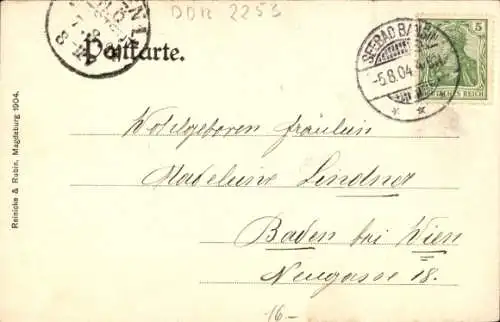 DDR 2253
Postkarte.
SEEBAD BANSIN
5.8.04
5
DEUTSCHES REICH
Wohlgeboren Fräulein
Madeleine Lindner
Baden bei Wien
Neugasse 18.
16.-
Reinicke & Rubin, Magdeburg 1904.